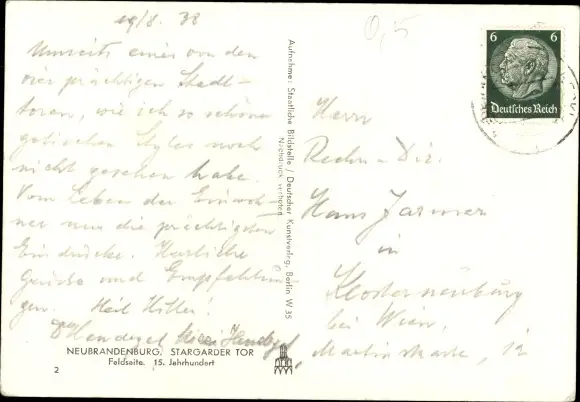 19/8. 38
0,5
Umseits eines von den
vier prächtigen Stadt-
toren, wie ich so schöne
gotischen Styles noch
nicht gesehen habe.
Vom Leben der Einwoh-
ner nur die prächtigsten
Eindrücke. Herzliche
Grüße und Empfehlun
gen. Heil Hitler!
NEUBRANDENBURG. STARGARDER TOR
Feldseite. 15. Jahrhundert
2
Aufnahme: Staatliche Bildstelle / Deutscher Kunstverlag, Berlin W 35
Nachdruck verboten
6 6
Deutsches Reich
Herrn
Rechn. Dir.
Hans
in
Klosterneuburg
bei Wien,
Martinstraße, 12